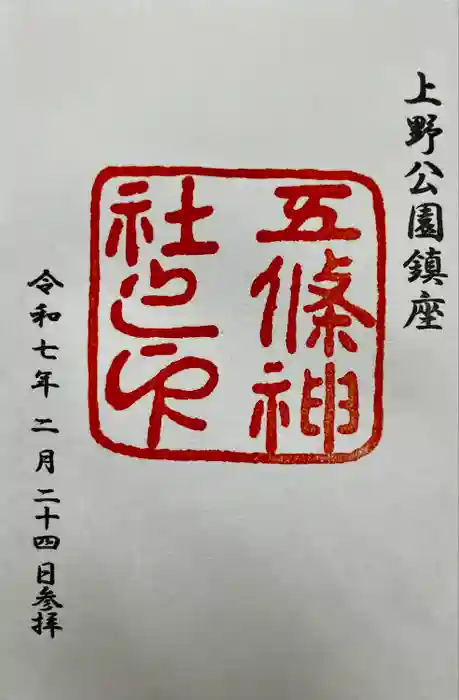 上野公園鎮座
五條神
社之印
令和七年二月二十四日参拝